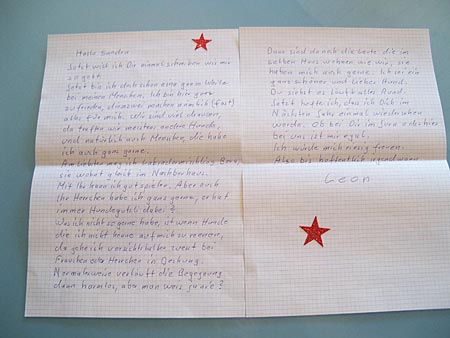 Hallo Sandra
Jetzt will ich Dir einmal schreiben wie mir
es geht.
Jetzt bin ich doch schon eine ganze Weile
bei meinen Menschen. Ich bin hier ganz
zufrieden, die zwei machen nämlich (fast)
alles für mich. Wir sind viel draussen,
da treffen wir meistens andere Hunde,
und natürlich auch Menschen, die habe
ich auch ganz gerne.
Am liebsten mag ich
sie wohnt gleich im Nachbarhaus.
Mit ihr kann ich gut spielen. Aber auch
ihr Herrchen habe ich ganz gerne, er hat
immer Hundeguteli dabei?
Was ich nicht so gerne habe, ist wenn Hunde
die ich nicht kenne auf mich zu rennen,
da gehe ich vorsichtshalber zuerst bei
Frauchen oder Herrchen in Deckung.
Normalerweise verläuft die Begegnung
dann harmlos, aber man weis ja nie?
Dann sind da noch die Leute die im
selben Haus wohnen wie wir, sie
haben mich auch gerne. Ich sei ein
ganz schöner und lieber Hund.
Du siehst es läuft alles Rund.
Jetzt hoffe ich, das ich Dich im
Nächsten Jahr einmal wiedersehen
werde. Ob bei Dir im Jura oder hier
bei uns ist mir egal.
Ich würde mich riesig freuen.
Also bis hoffentlich irgendwann
Leon